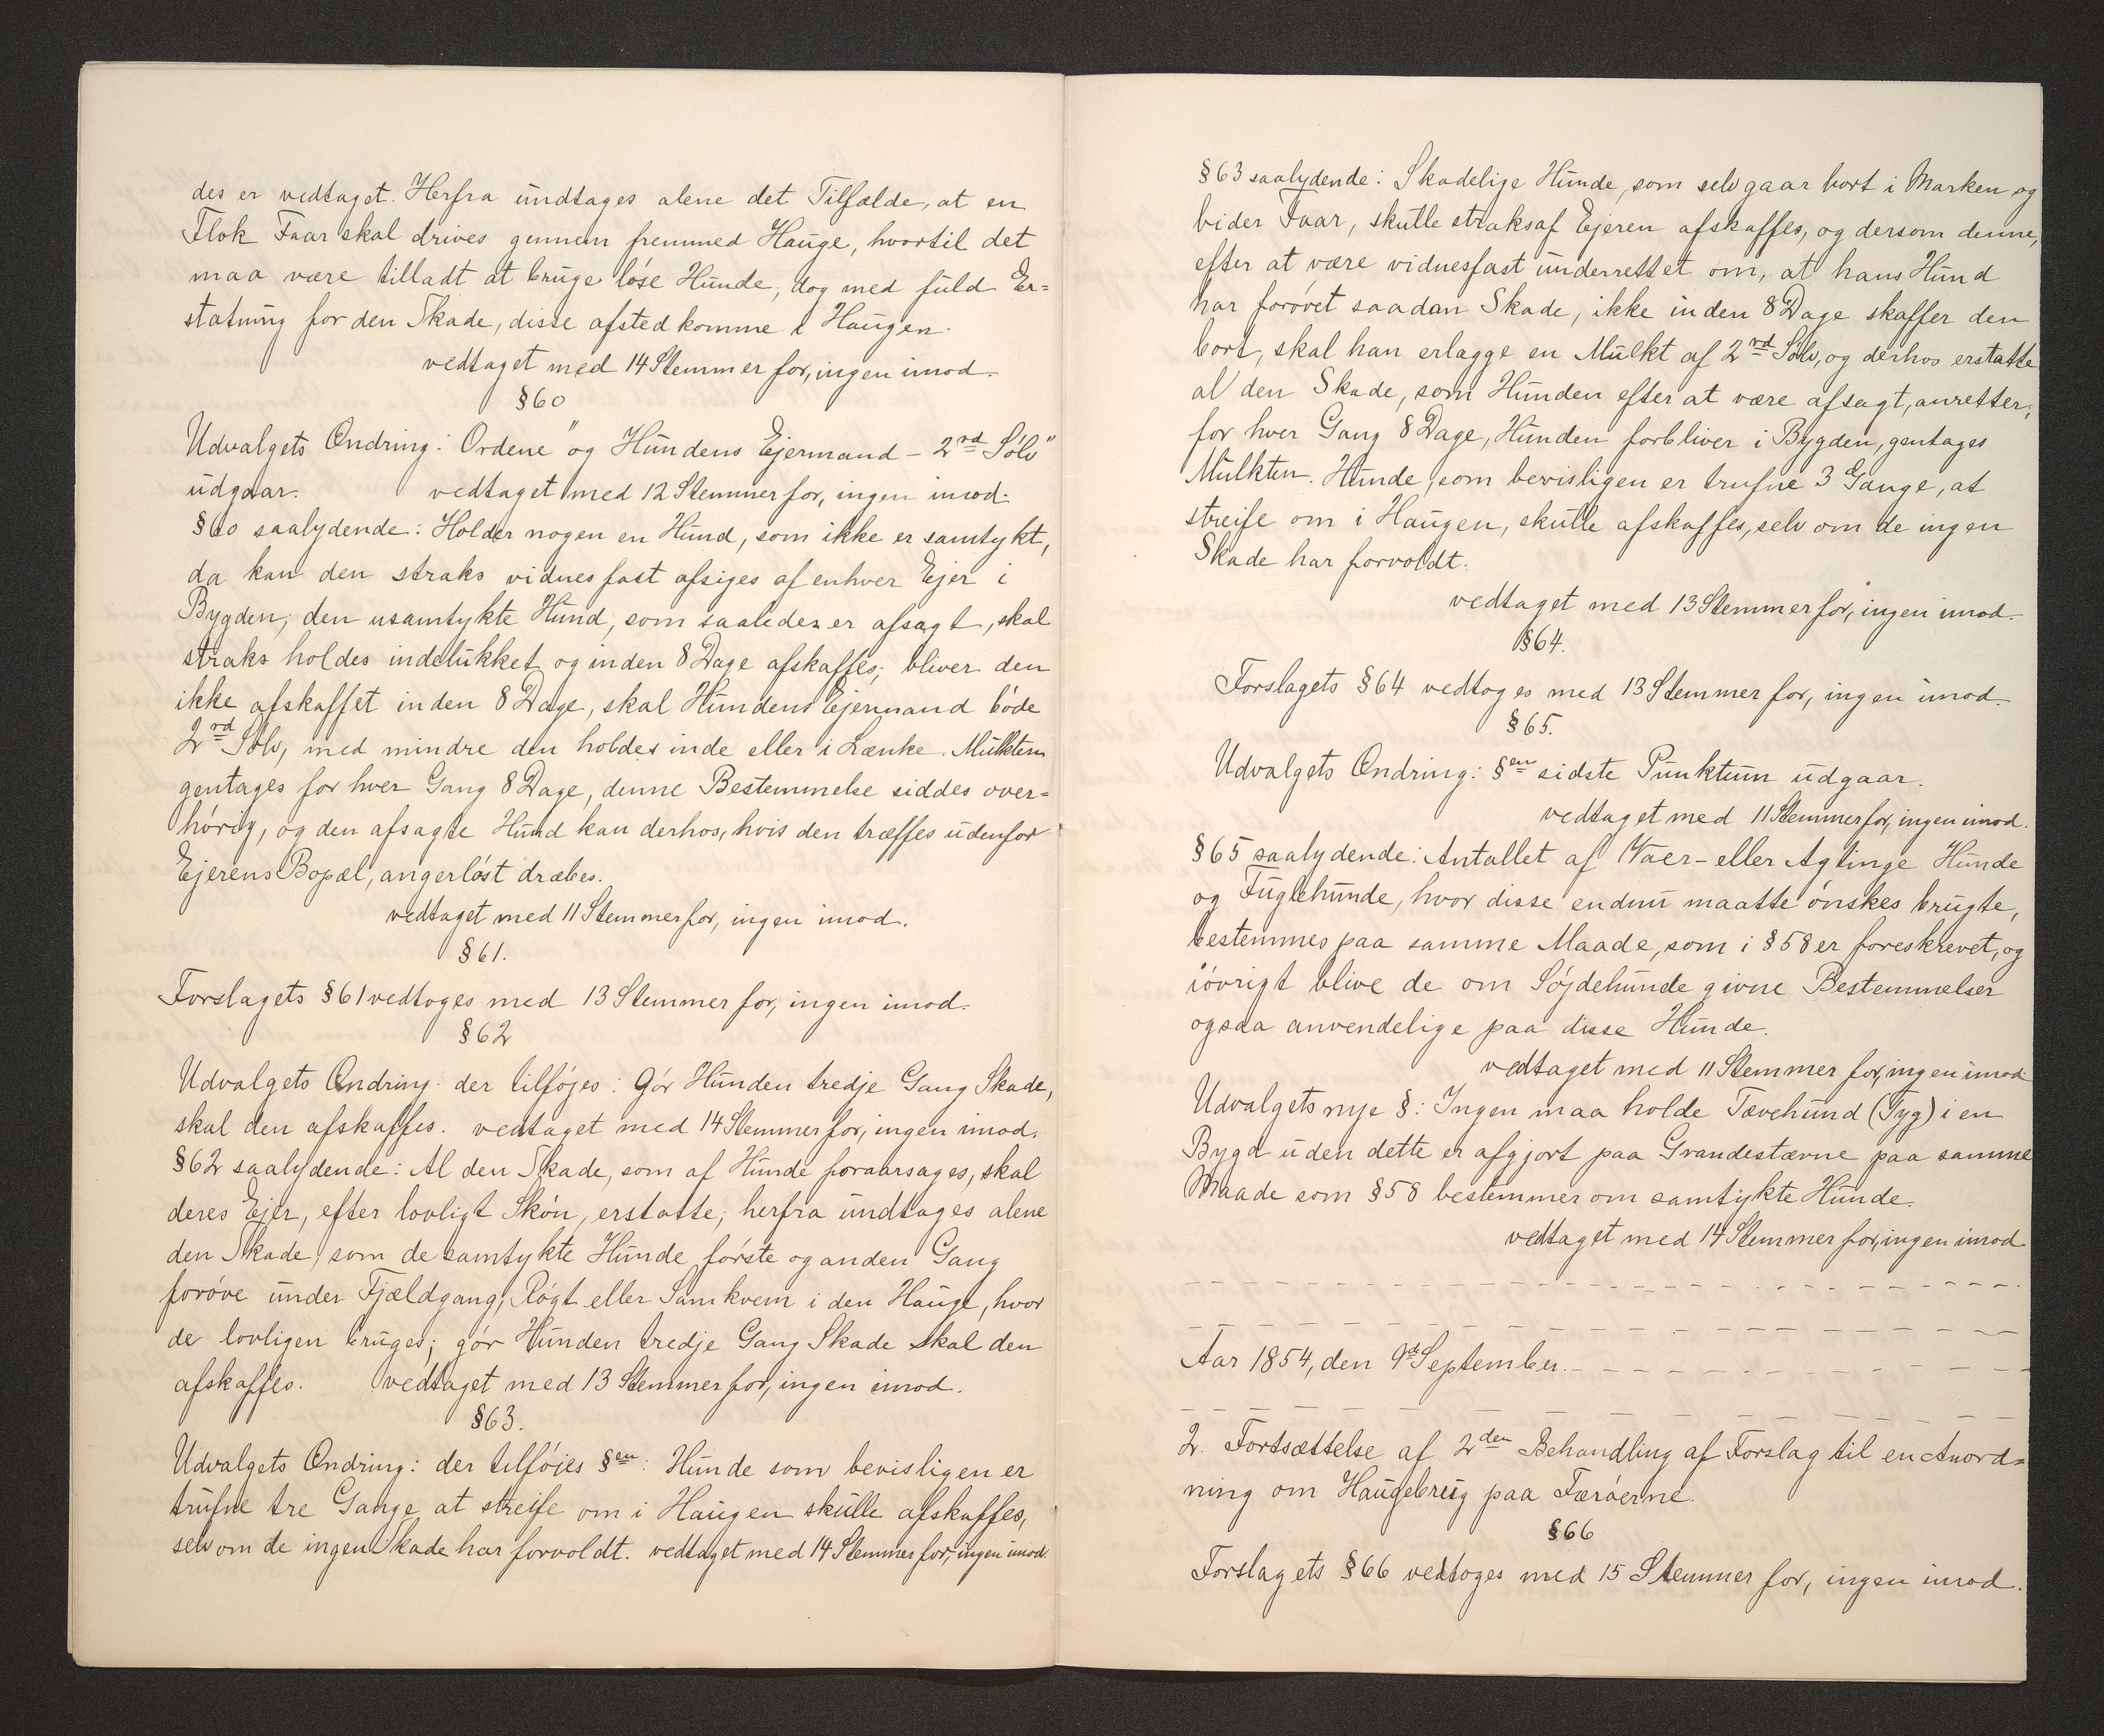 des er vedtaget. Herfra undtages alene det Tilfælde, at en
Flok Faar skal drives gennem fremmed Hauge, hvortil det
maa være tilladt at bruge løse Hunde, dog med fuld Er=
statning for den Skade, disse afsted komme i Haugen.
vedtaget med 14 Stemmer for, ingen imod.
§60
Udvalgets Ændring: Ordene "og Hundens Ejermand - 2 rd Sølv"
udgaar. vedtaget med 12 Stemmer for, ingen imod.
§60 saalydende: Holder nogen en Hund, som ikke er samtykt,
da kan den straks vidnesfast afsiges af enhver Ejer i
Bygden; den usamtykte Hund, som saaledes er afsagt, skal
straks holdes indelukket og inden 8 Dage afskaffes; bliver den
ikke afskaffet inden 8 Dage, skal Hundens Ejermand bøde
2 rd Sølv, med mindre den holdes inde eller i Lænke. Mulkten
gentages for hver Gang 8 Dage, denne Bestemmelse siddes over=
hørig, og den afsagte Hund kan derhos, hvis den træffes udenfor
Ejerens Bopæl, angerløst dræbes.
vedtaget med 11 Stemmer for, ingen imod.
§61.
Forslagets §61 vedtoges med 13 Stemmer for, ingen imod.
§62
Udvalgets Ændring: der tilføjes: Gør Hunden tredje Gang Skade,
skal den afskaffes. vedtaget med 14 Stemmer for, ingen imod.
§62 saalydende: Al den Skade, som af Hunde foraarsages, skal
deres Ejer, efter lovligt Skøn, erstatte; herfra undtages alene
den Skade, som de samtykte Hunde første og anden Gang
forøve under Fjældgang, Røgt eller Samkvem i den Hauge, hvor
de lovligen bruges; gør Hunden tredje Gang Skade skal den
afskaffes. vedtaget med 13 Stemmer for, ingen imod.
§63.
Udvalgets Ændring: der tilføjes §en: Hunde som bevisligen er
trufne tre Gange at streife om i Haugen skulle afskaffes,
selv om de ingen Skade har forvoldt. vedtaget med 14 Stemmer for, ingen imod.
§63 saalydende: Skadelige Hunde, som selv gaar bort i Marken og
bider Faar, skulle straks af Ejeren afskaffes, og dersom denne,
efter at være vidnesfast underrettet om, at hans Hund
har forøvet saadan Skade, ikke inden 8 Dage skaffer den
bort, skal han erlægge en Mulkt af 2 rd Sølv, og derhos erstatte
al den Skade, som Hunden efter at være afsagt, anretter;
for hver Gang 8 Dage, Hunden forbliver i Bygden, gentages
Mulkten. Hunde, som bevisligen er trufne 3 Gange, at
streife om i Haugen, skulle afskaffes, selv om de ingen
Skade har forvoldt.
vedtaget med 13 Stemmer for, ingen imod.
§64.
Forslagets §64 vedtoges med 13 Stemmer for, ingen imod.
§65.
Udvalgets Ændring: §en sidste Punktum udgaar.
vedtaget med 11 Stemmer for, ingen imod.
§65 saalydende: Antallet af Vaer- eller Agtinge Hunde
og Fuglehunde, hvor disse endnu maatte ønskes brugte,
bestemmes paa samme Maade, som i §58 er foreskrevet, og
iøvrigt blive de om Søjdehunde givne Bestemmelser
ogsaa anvendelige paa disse Hunde.
vedtaget med 11 Stemmer for, ingen imod
Udvalgets nye §: Ingen maa holde Tævehund (Tyg) i en
Bygd uden dette er afgjort paa Grandestævne paa samme
Maade som §58 bestemmer om samtykte Hunde.
vedtaget med 14 Stemmer for, ingen imod
Aar 1854, den 9de September.
2. Fortsættelse af 2den Behandling af Forslag til en Anord=
ning om Haugebrug paa Færøerne.
§66
Forslagets §66 vedtoges med 15 Stemmer for, ingen imod.